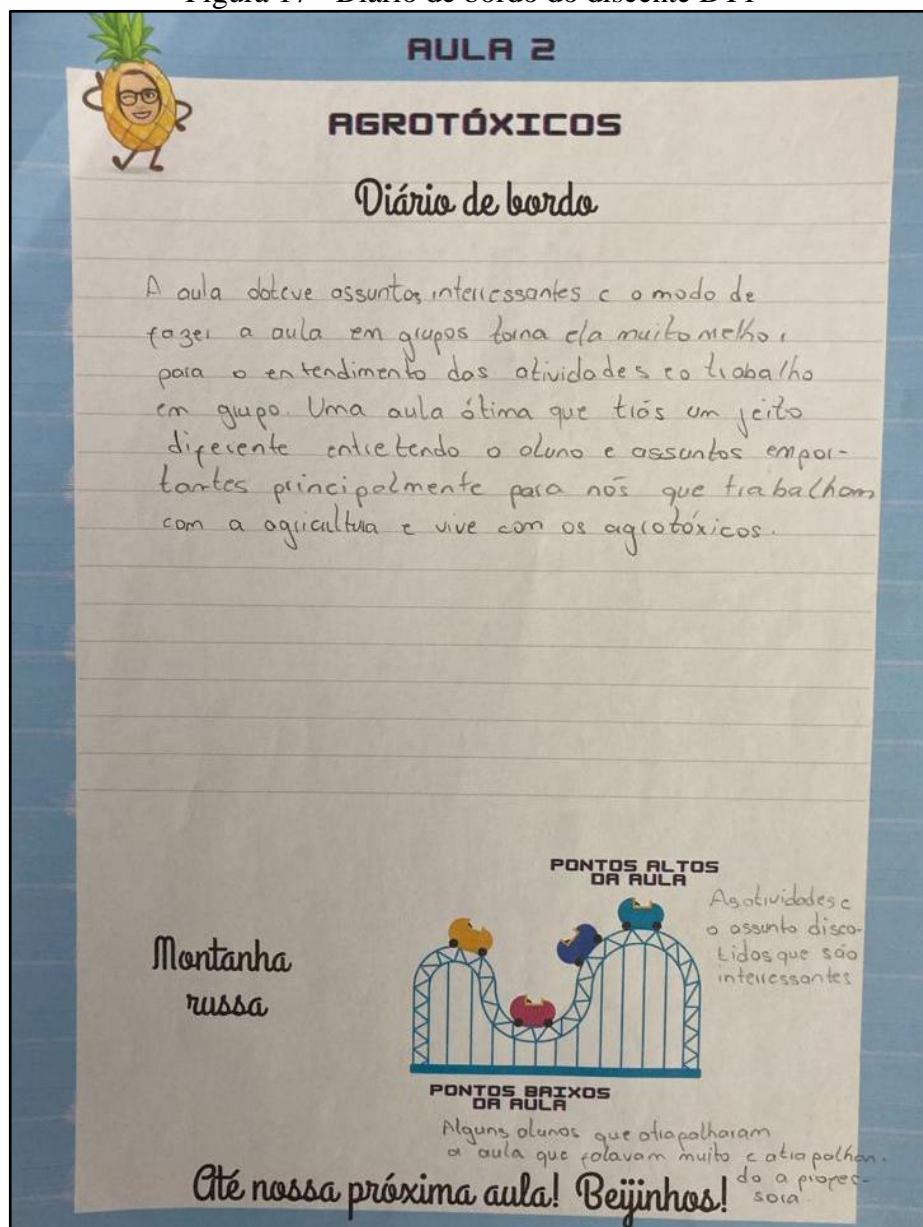 Figura 17 - Diário de bordo do discente D11
AULA 2
AGROTÓXICOS
Diário de bordo
A aula doteve assuntos interressantes e o modo de
fazer a aula em grupos torna ela muito melhor
para o entendimento das atividades e o trabalho
em grupo. Uma aula ótima que trás um jeito
diferente entretendo o aluno e assuntos empor-
tantes principalmente para nós que trabalham
com a agricultura e vive com os agrotóxicos.
PONTOS ALTOS
DA AULA
As atividades e
o assunto disco-
tidos que são
interressantes
Montanha
russa
PONTOS BAIXOS
DA AULA
Alguns alunos que atrapalharam
a aula que falavam muito e atrapalhan-
do a profes-
sora.
Até nossa próxima aula! Beijinhos!